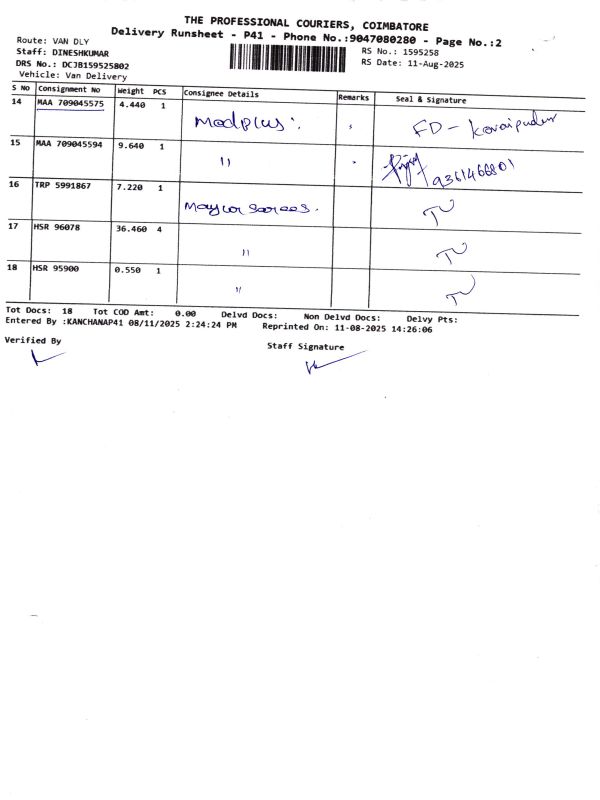 THE PROFESSIONAL COURIERS, COIMBATORE
Delivery Runsheet - P41 - Phone No.:9047080280 - Page No.:2
Route: VAN DLY
Staff: DINESHKUMAR
DRS No.: DCJB159525802
Vehicle: Van Delivery
RS No.: 1595258
RS Date: 11-Aug-2025
S No Consignment No Weight PCS Consignee Details Remarks Seal & Signature
14 MAA 709045575 4.440 1 Medplus FD - Kovaipudur
15 MAA 709045594 9.640 1 " 9361466801
16 TRP 5991867 7.220 1
17 HSR 96078 36.460 4 "
18 HSR 95900 0.550 1 "
Tot Docs: 18 Tot COD Amt: 0.00 Delvd Docs: Non Delvd Docs: Delvy Pts:
Entered By :KANCHANAP41 08/11/2025 2:24:24 PM Reprinted On: 11-08-2025 14:26:06
Verified By
Staff Signature